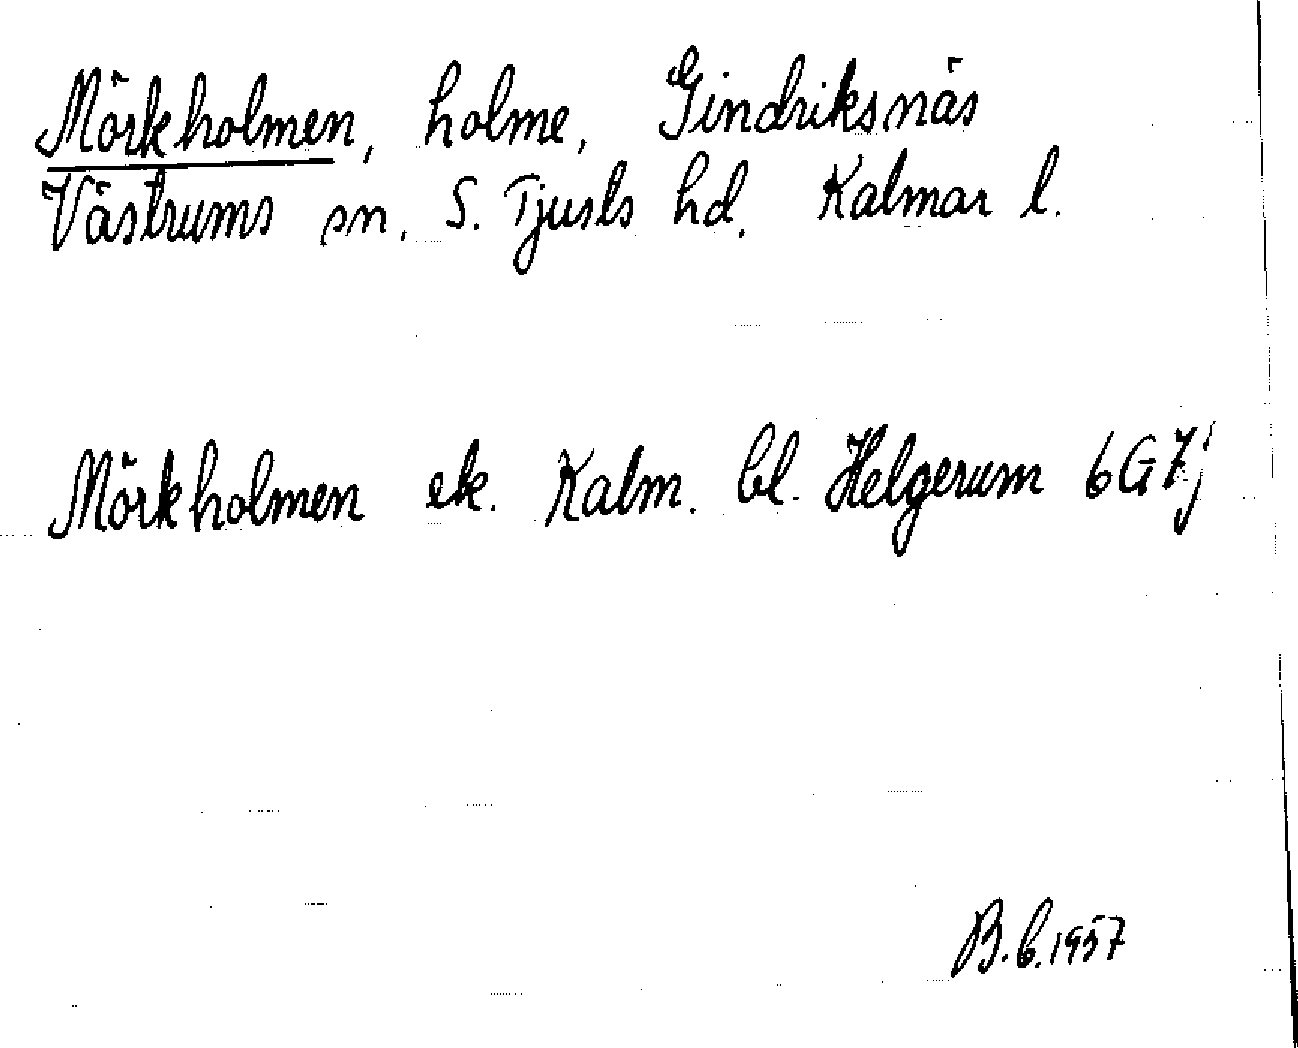 Mörkholmen, holme, Gindriksnäs
Västrums sn. S. Tjusts hd. Kalmar l.
Mörkholmen ek. Kalm. bl. Helgerum 6G7j
B.b.1957